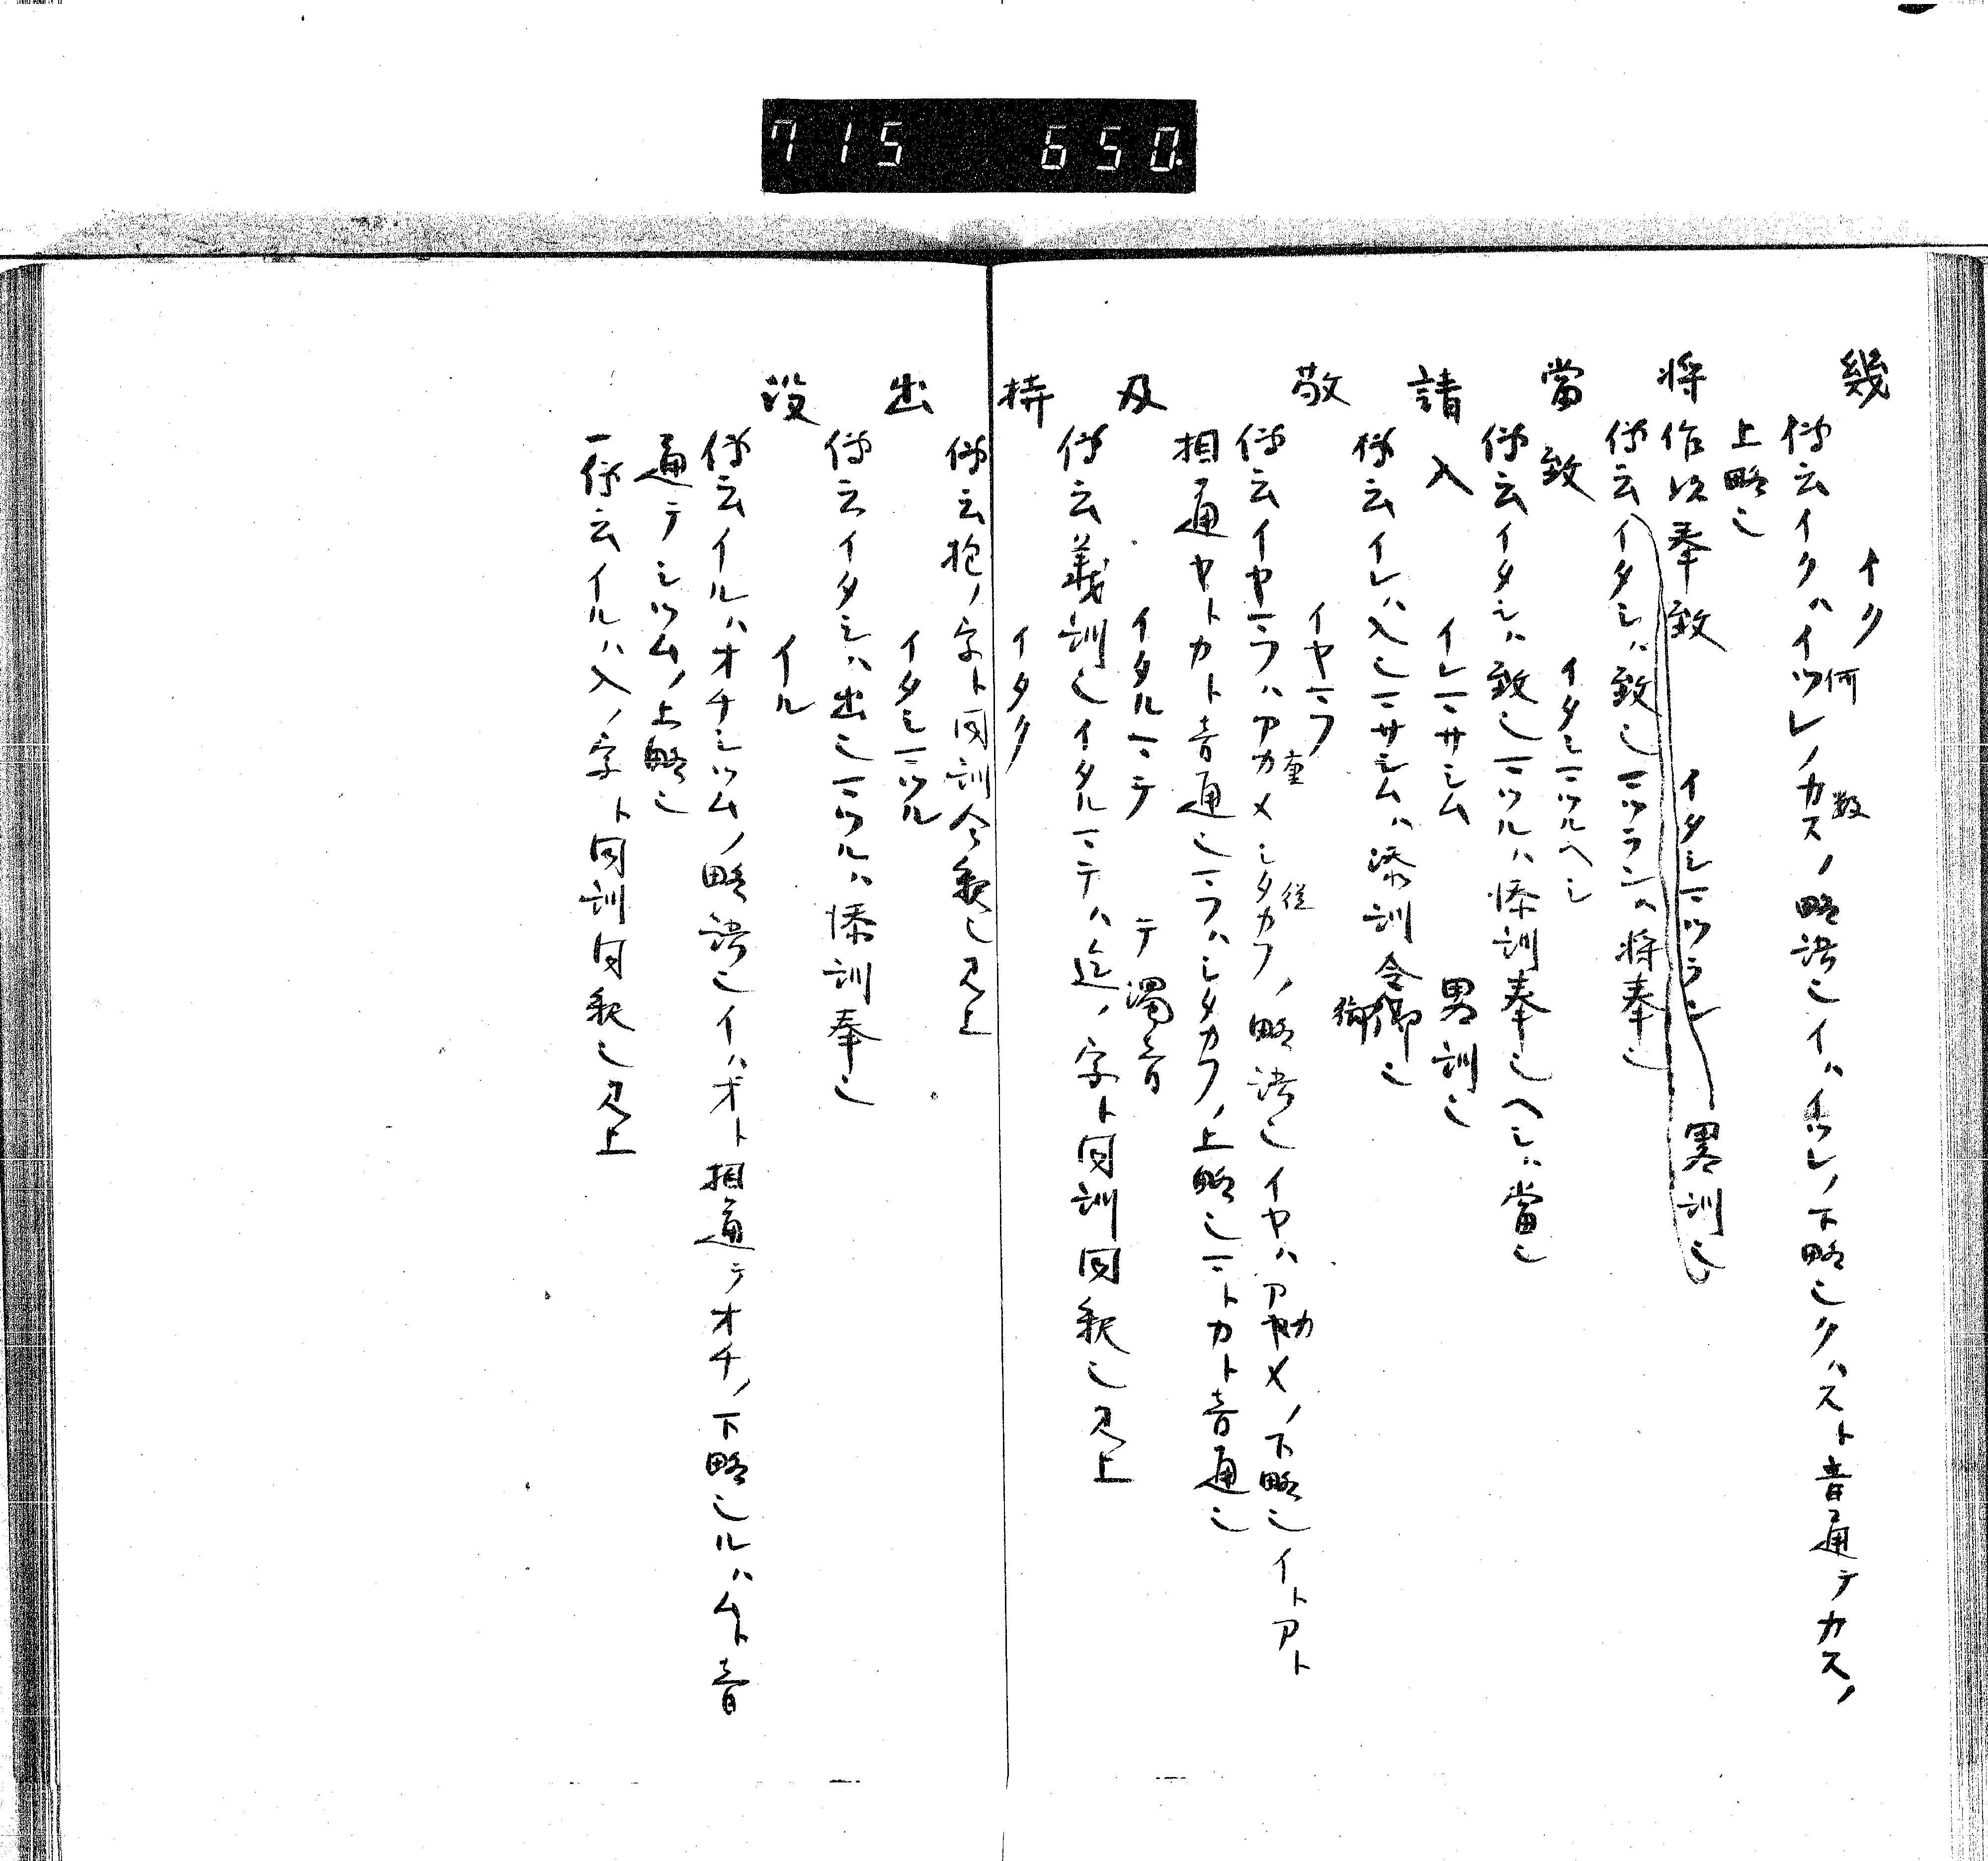 715 650.
幾 イク
傳云イクハイツレ何ノカス数ノ略語也イハイツレノ下略也クハスト音通テカスノ
上略也
将作次奉致 イタシマツラン 略訓也
傳云イタシハ致也マツランハ将奉也
當致 イタシマツルヘシ
傳云イタシハ致也マツルハ添訓奉也ヘシハ當也
請入 イレマサシム 略訓也
傳云イレハ入也マサシムハ添訓令御也
敬 イヤマフ
傳云イヤマフハアカメ重シタカフ従ノ略語也イヤハアカメノ下略也イトアト
相通ヤトカト音通也マフハシタカフノ上略也マトカト音通也
及 イタルマテ テ濁音
傳云義訓也イタルマテハ迄ノ字ト同訓同釈也見上
持 イタク
傳云抱ノ字ト同訓今釈也見上
出 イタシマツル
傳云イタシハ出也マツルハ添訓奉也
没 イル
傳云イルハオチシツムノ略語也イハオト相通テオチノ下略也ルハムト音
通テシツムノ上略也
一傳云イルハ入ノ字ト同訓同釈也見上